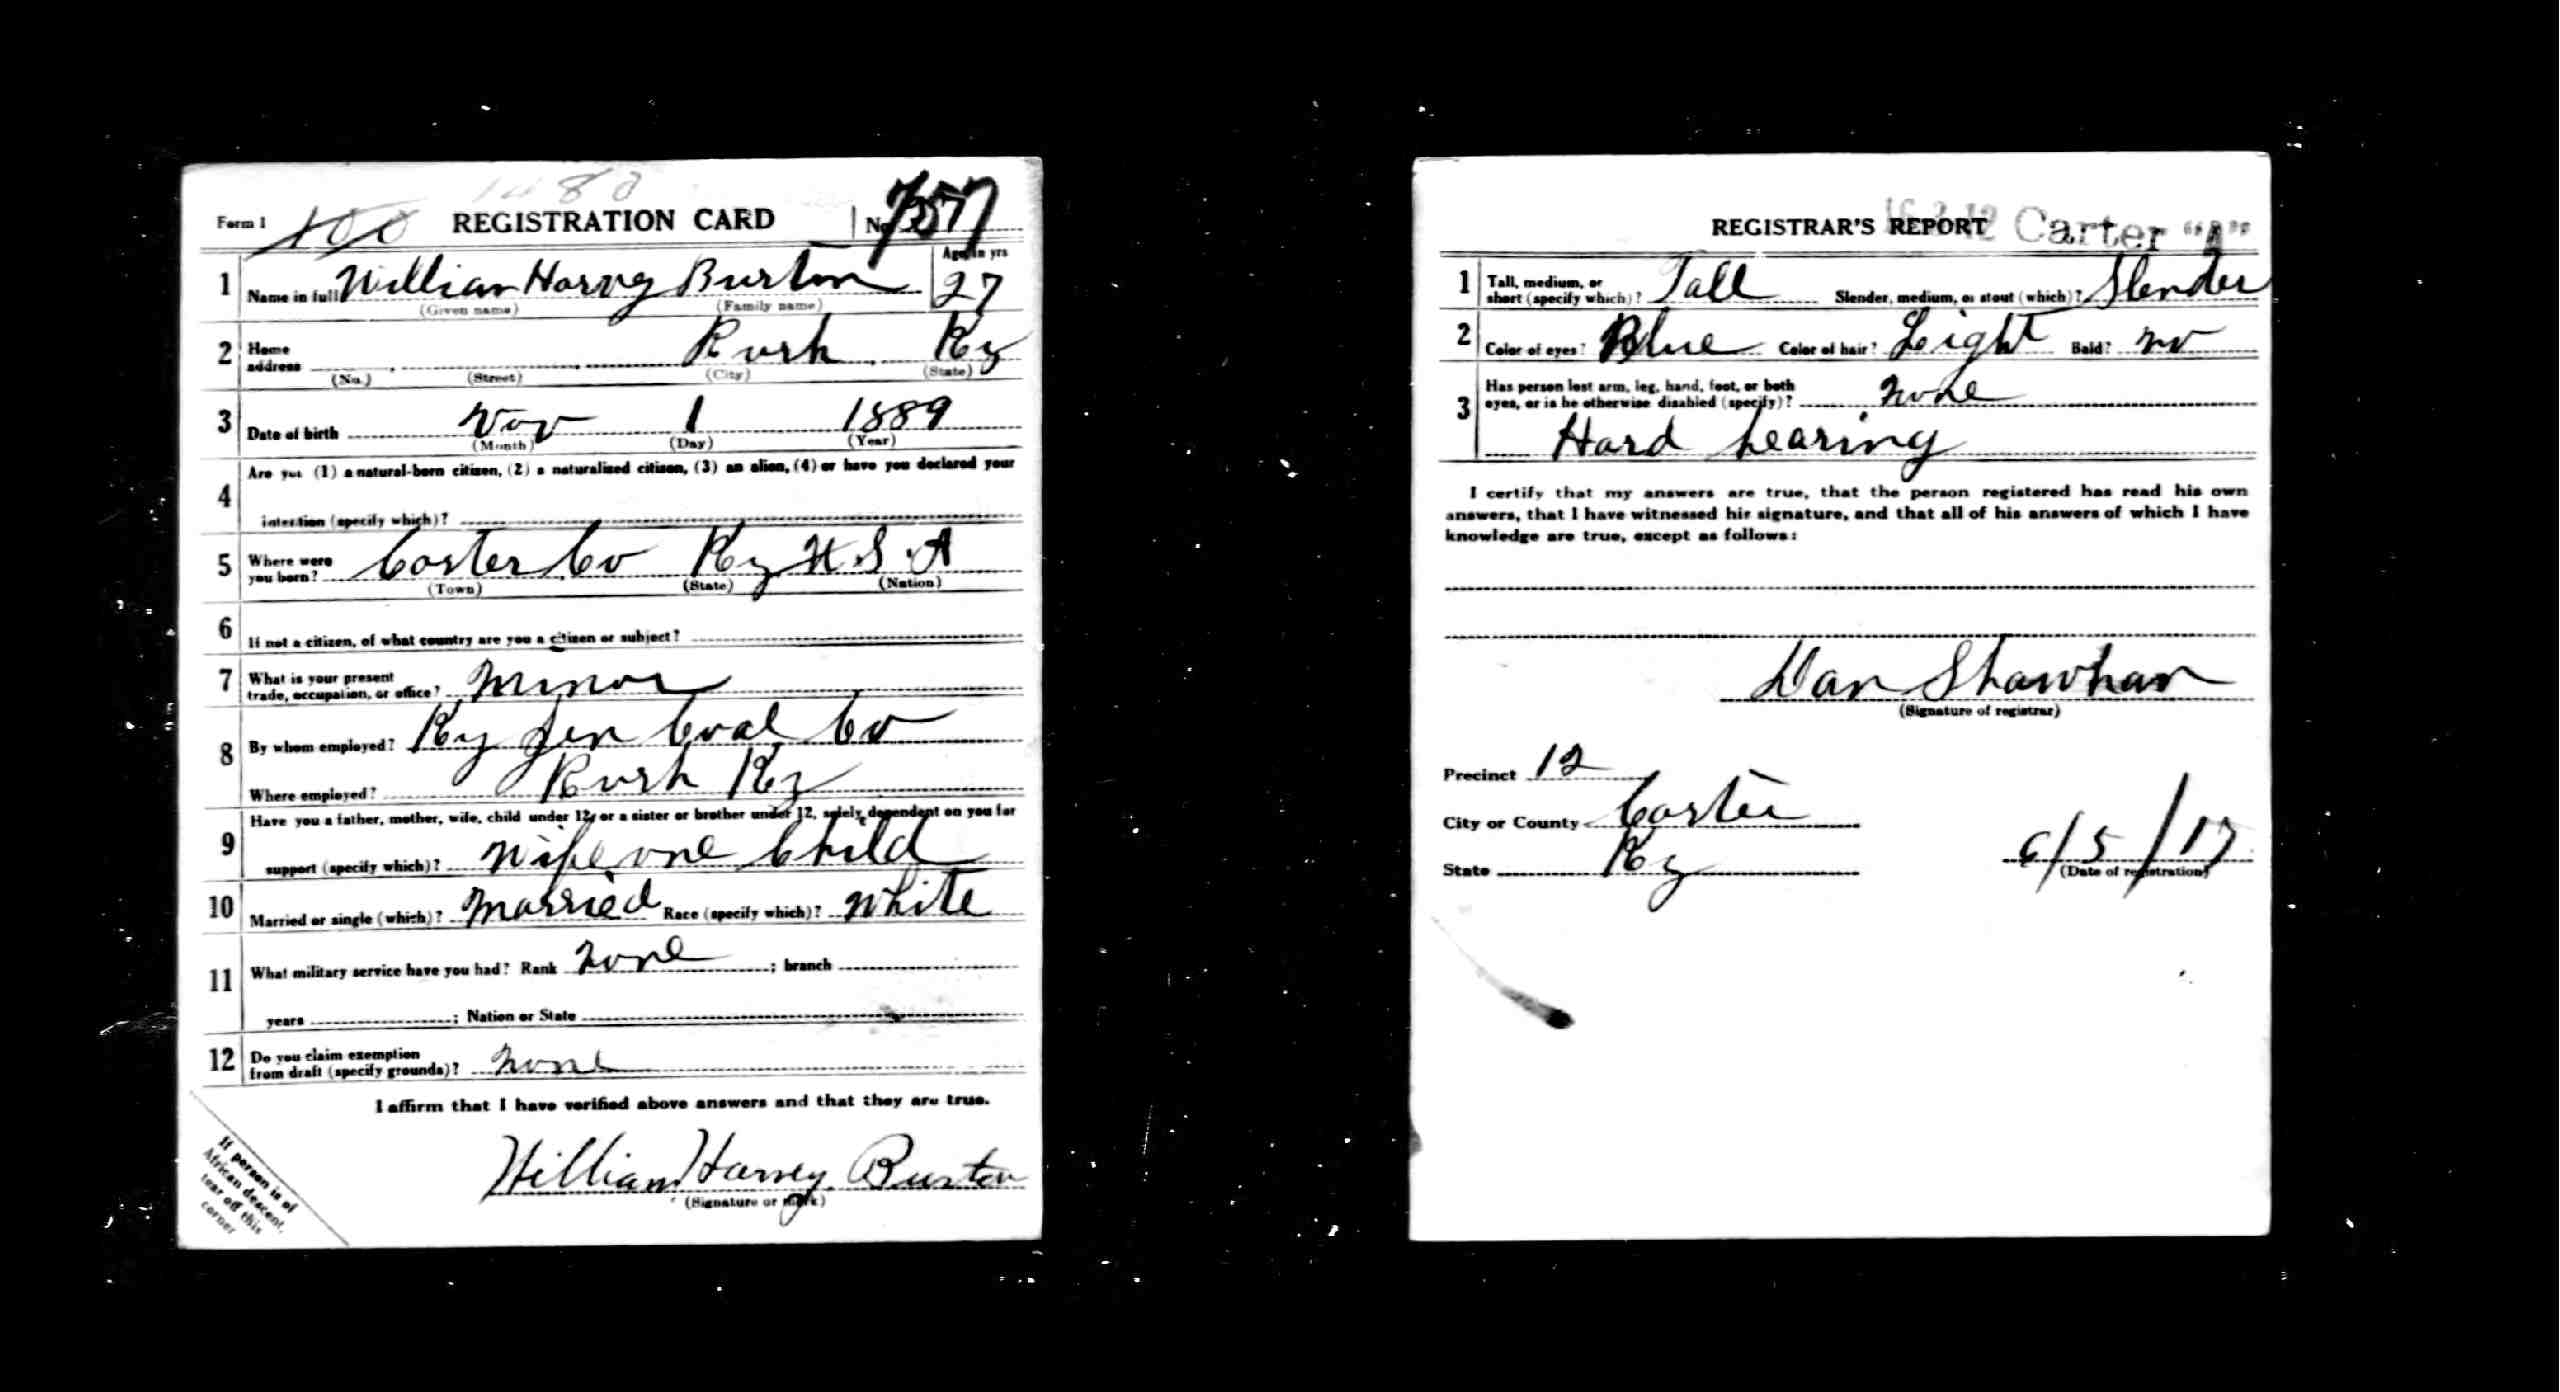 Form 1 REGISTRATION CARD No. 757
1 Name in full William Harvy Burton Age, in yrs 27
(Given name) (Family name)
2 Home address Rush Ky
(No.) (Street) (City) (State)
3 Date of birth Nov 1 1889
(Month) (Day) (Year)
4 Are you (1) a natural-born citizen, (2) a naturalized citizen, (3) an alien, (4) or have you declared your
intention (specify which)?
5 Where were you born? Carter Co Ky U.S.A
(Town) (State) (Nation)
6 If not a citizen, of what country are you a citizen or subject?
7 What is your present trade, occupation, or office? Minor
8 By whom employed? Ky Jen Coal Co
Where employed? Rush Ky
9 Have you a father, mother, wife, child under 12, or a sister or brother under 12, solely dependent on you for
support (specify which)? Wife one Child
10 Married or single (which)? Married Race (specify which)? White
11 What military service have you had? Rank None ; branch
years ; Nation or State
12 Do you claim exemption from draft (specify grounds)? None
I affirm that I have verified above answers and that they are true.
William Harvey Burton
(Signature or mark)
If person is of
African descent,
tear off this
corner
REGISTRAR'S REPORT Carter "A"
1 Tall, medium, or short (specify which)? Tall Slender, medium, or stout (which)? Slender
2 Color of eyes? Blue Color of hair? Leight Bald? no
3 Has person lost arm, leg, hand, foot, or both
eyes, or is he otherwise disabled (specify)? None
Hard hearing
I certify that my answers are true, that the person registered has read his own
answers, that I have witnessed his signature, and that all of his answers of which I have
knowledge are true, except as follows:
Dan Shawhan
(Signature of registrar)
Precinct 12
City or County Carter
State Ky 6/5/17
(Date of registration)